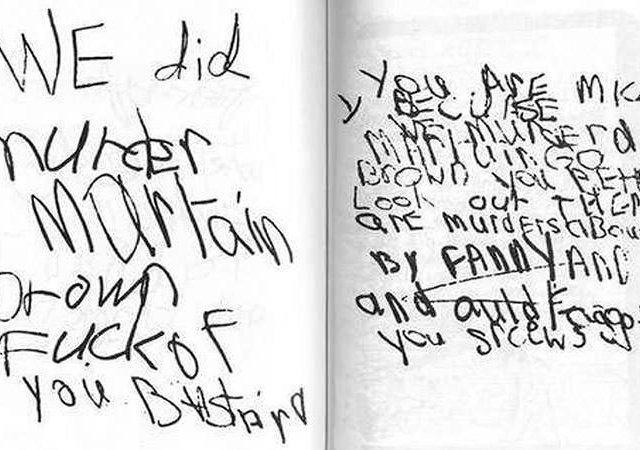 WE did
murder
martain
brown
Fuckof
you BAstArd
You ArE MIC
y BECUrSE
WE MUrdErd
MArtAIN GO
BroWN You BETE
Look out THEr
arE murdErs aBou
By FANNYAND
and auld Faggo
you srcews